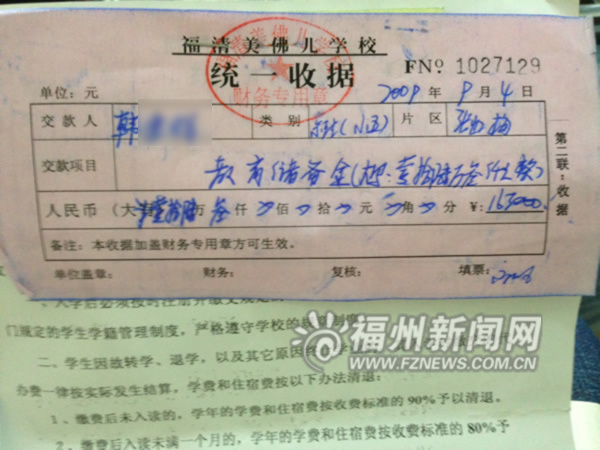 福清美佛儿学校
统一收据
财务专用章
FNº 1027129
单位:元 2009年9月4日
交款人 韩 类别 片区
交款项目 教育储备金(大写:壹拾陆万叁仟元
人民币(大写)壹拾陆万叁仟 佰 拾 元 角 分 ¥:163000
备注:本收据加盖财务专用章方可生效。
单位盖章: 财务: 复核: 填票:
第二联:收据
门规定的学生学籍管理制度,严格遵守学校的
二、学生因故转学、退学,以及其它原因
办费一律按实际发生结算,学费和住宿费按以下办法清退:
1、缴费后未入读的,学年的学费和住宿费按收费标准的90%予以清退。
2、缴费后入读未满一个月的,学年的学费和住宿费按收费标准的80%予
福州新闻网
WWW.FZNEWS.COM.CN